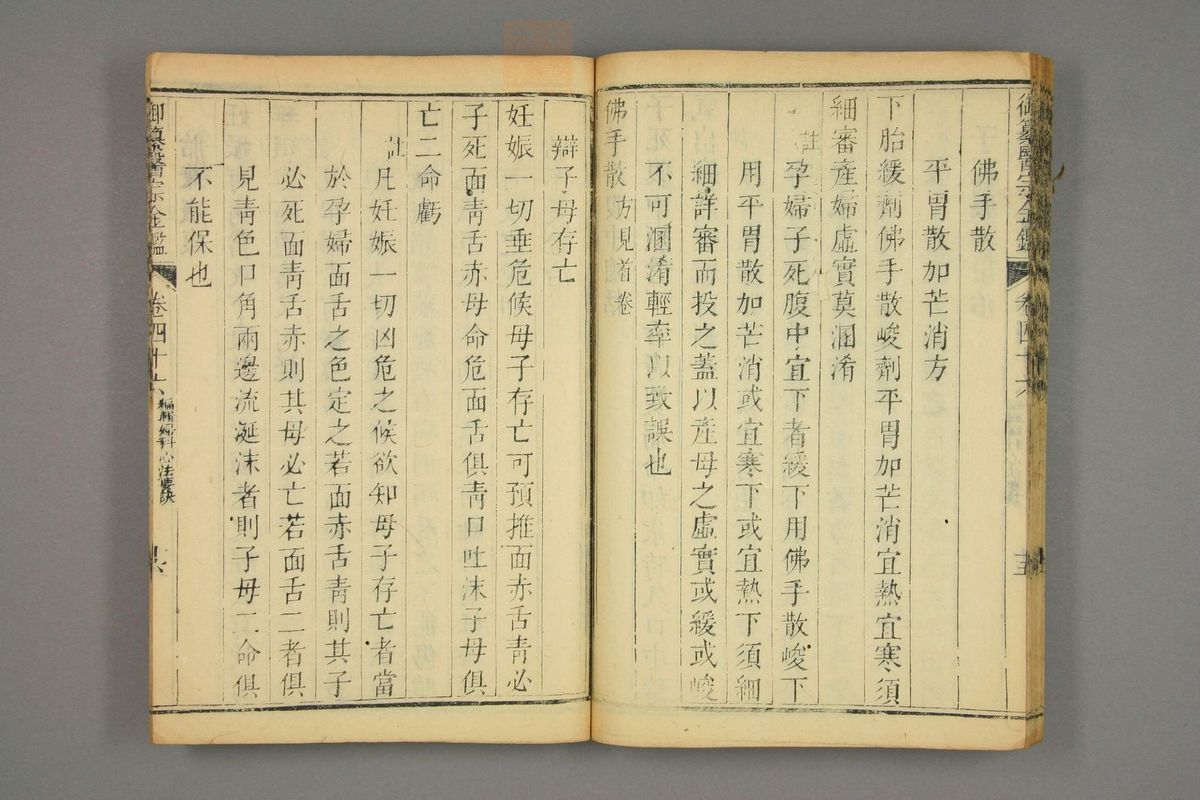 御纂醫宗金鑑 卷四十六 十五
佛手散
平胃散加芒消方
下胎緩劑佛手散峻劑平胃加芒消宜熱宜寒須
細審產婦虛實莫溷淆
註孕婦子死腹中宜下者緩下用佛手散峻下
用平胃散加芒消或宜寒下或宜熱下須細
細詳審而投之蓋以產母之虛實或緩或峻
不可溷淆輕率以致誤也
佛手散方見首卷
辯子母存亡
妊娠一切垂危候母子存亡可預推面赤舌青必
子死面青舌赤母命危面舌俱青口吐沫子母俱
亡二命虧
註凡妊娠一切凶危之候欲知母子存亡者當
於孕婦面舌之色定之若面赤舌青則其子
必死面青舌赤則其母必亡若面舌二者俱
見青色口角兩邊流涎沫者則子母二命俱
不能保也
御纂醫宗金鑑 卷四十六 編輯婦科心法要訣